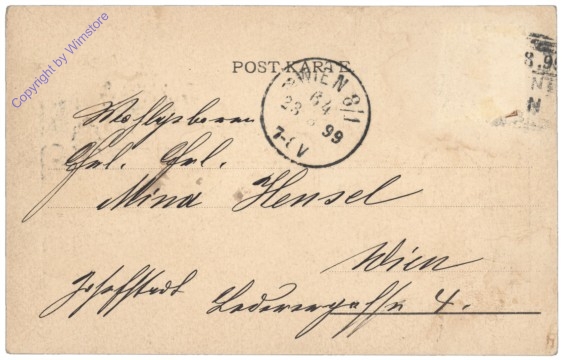 Copyright by Wimstore
POST-KARTE
WIEN 8/1
64
23 8 99
7-8 V
8.99
N
N
Wohlgeboren
Frl. Frl.
Mina Hensel
Wien
Josefstadt Lederergasse 4.